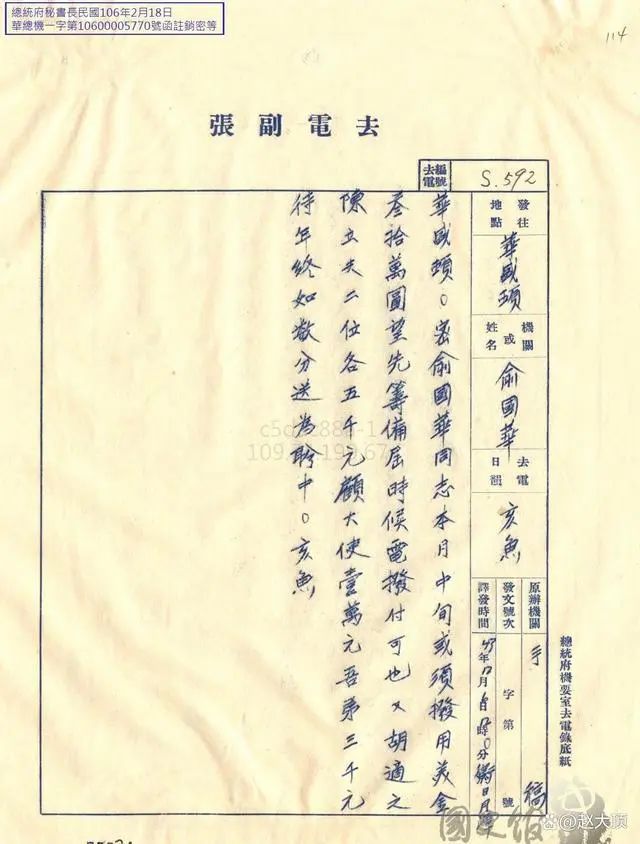 總統府秘書長民國106年2月18日
華總機一字第10600005770號函註銷密等
114
張副電去
去電編號
S.592
發往地點
華盛頓
機關或姓名
俞國華
去電日韻
亥魚
原辦機關
手稿
發文號次
字第 號
譯發時間
總統府機要室去電錄底紙
華盛頓○密俞國華同志本月中旬或須撥用美金
叁拾萬圓望先籌備屆時候電撥付可也又胡適之
陳立夫二位各五千元顧大使壹萬元吾弟三千元
待年終如數分送為盼中○亥魚
國史館
@赵大颖